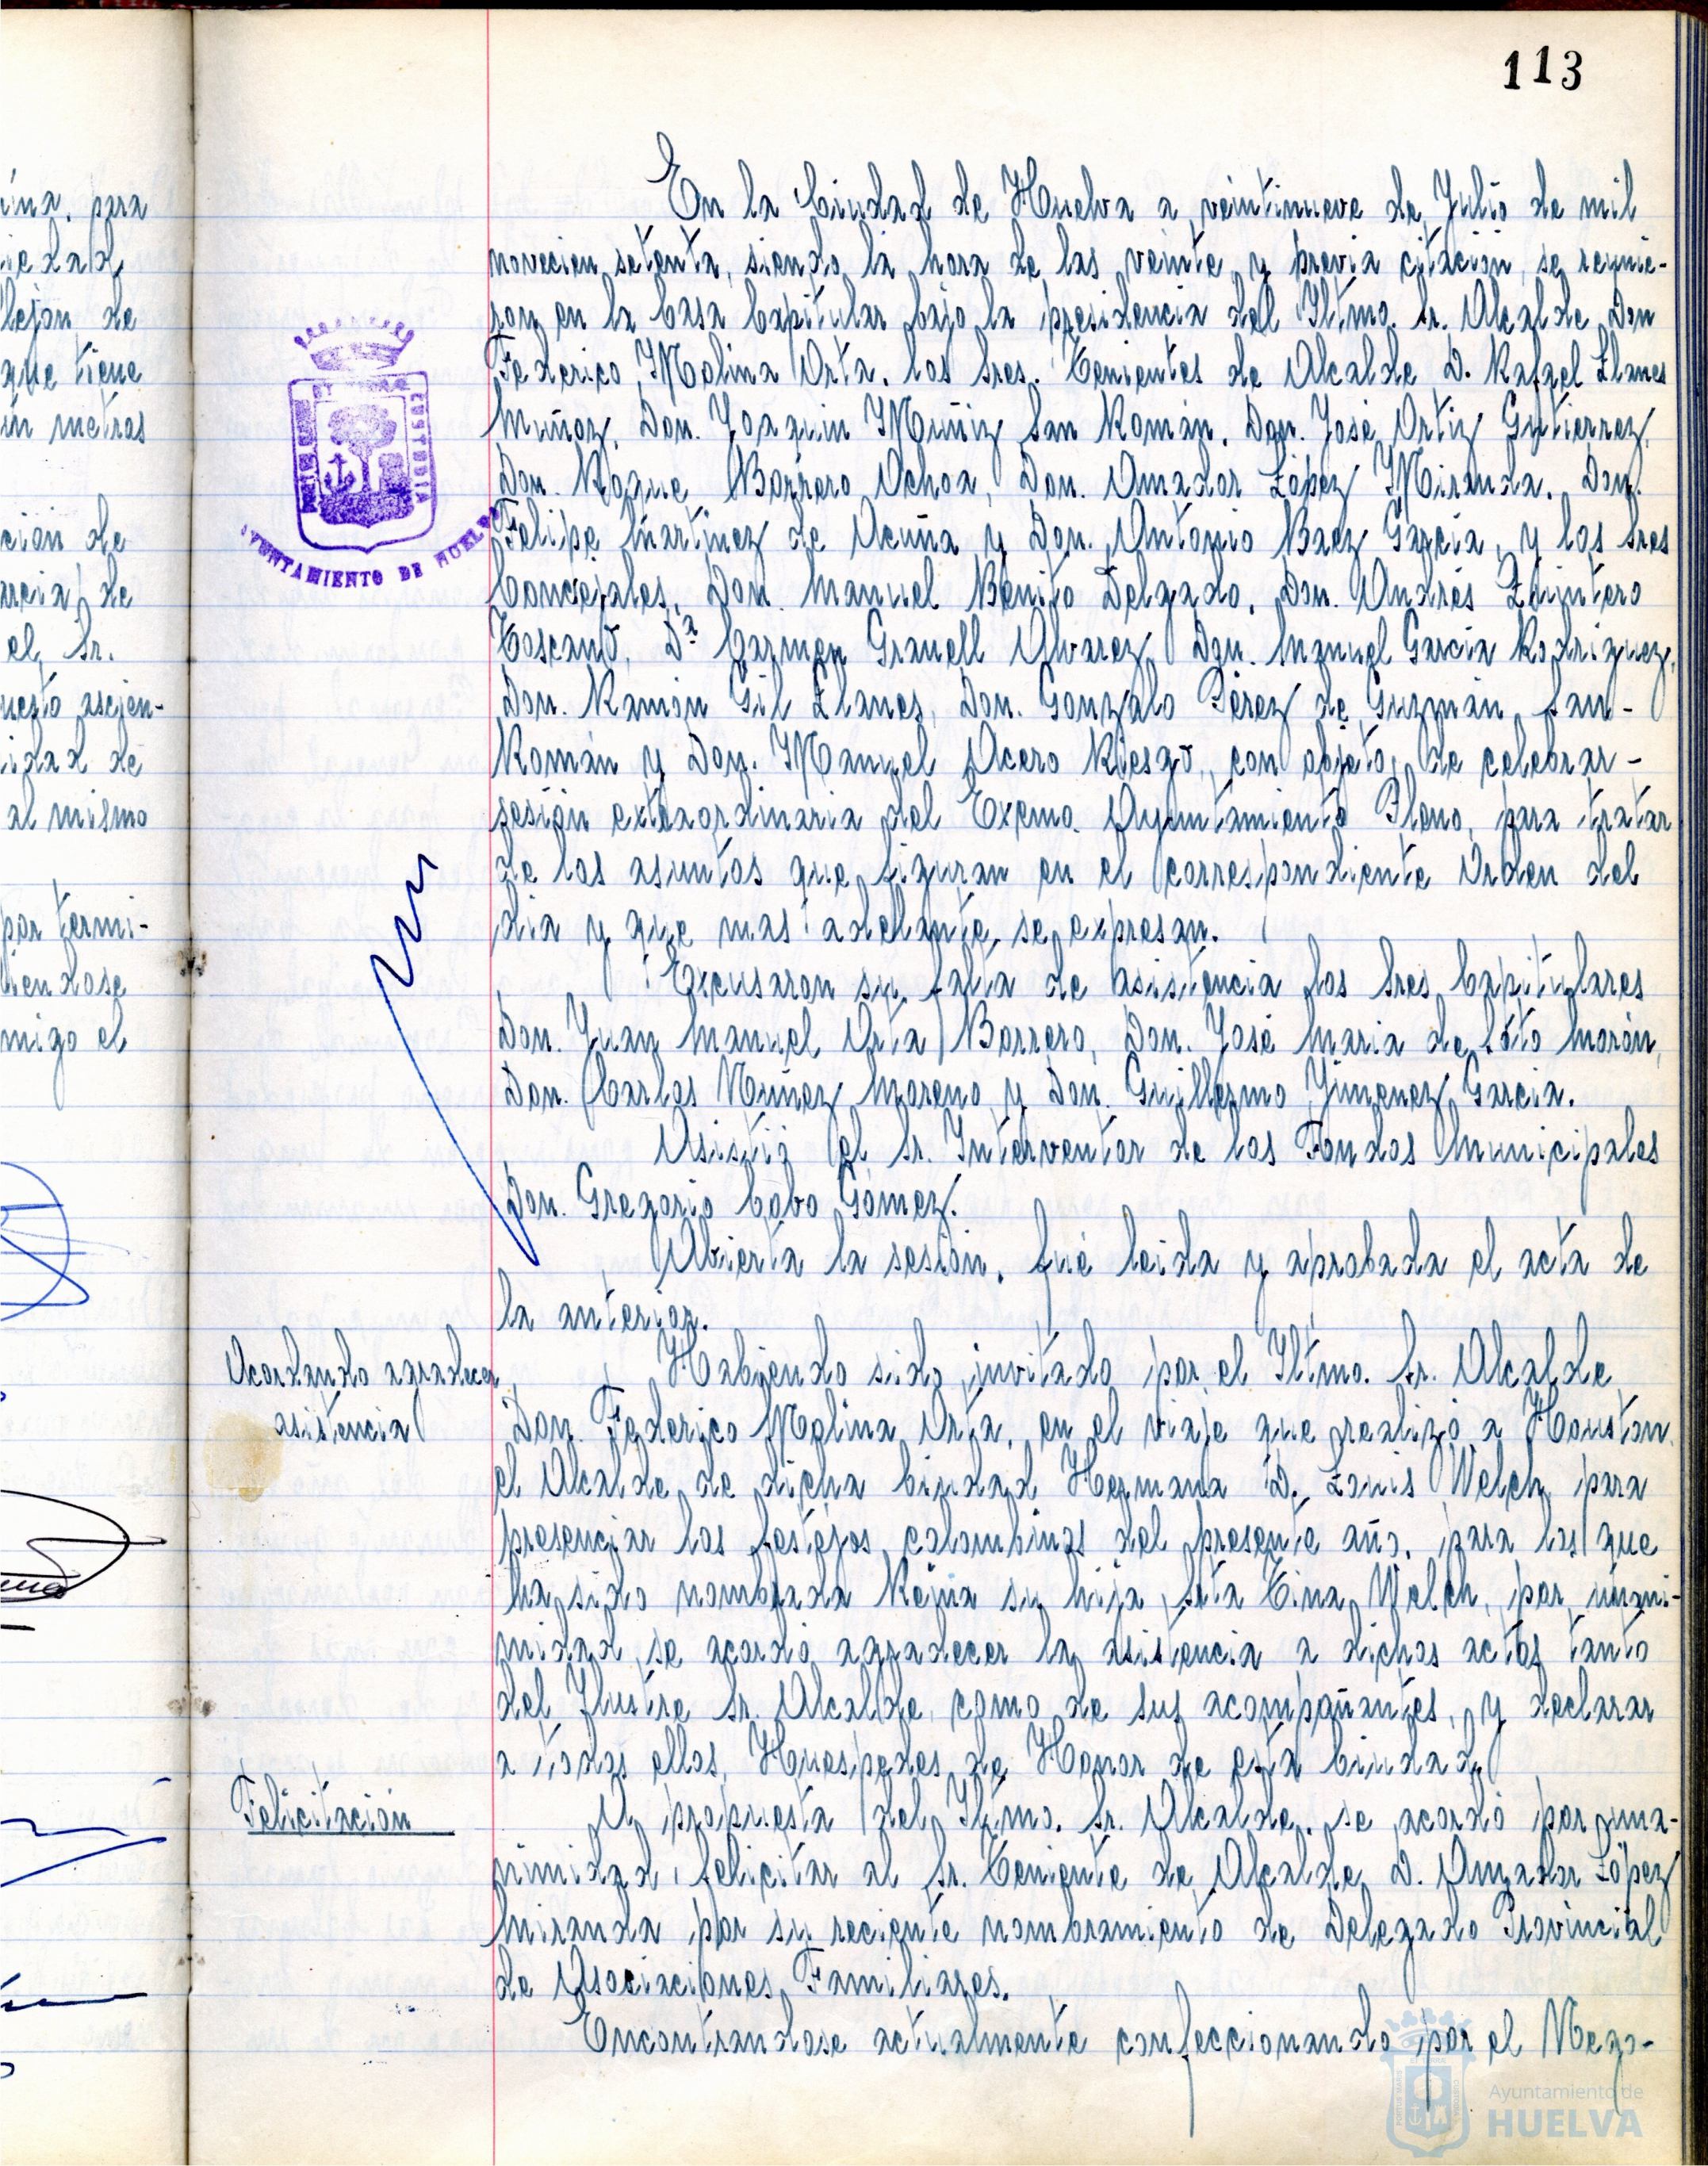 113
ina, para
iedad
llejon de
que tiene
un metros
cion de
arcia, de
el Sr.
uesto ascien-
idad de
al mismo
por termi-
iendose
migo el
AYUNTAMIENTO DE HUELVA
En la Ciudad de Huelva a veintinueve de Julio de mil
novecien setenta, siendo la hora de las veinte y previa citación, se reunie-
ron en la Casa Capitular bajo la presidencia del Iltmo. Sr. Alcalde Don
Federico Molina Orta, los Sres. Tenientes de Alcalde D. Rafael Llanes
Muñoz, Don. Joaquin Muñiz San Román, Don. José Ortiz Gutierrez,
Don. Roque Barrero Ochoa, Don. Amador López Miranda, Don.
Felipe Martinez de Acuña y Don. Antonio Baez Garcia, y los Sres
Concejales, Don. Manuel Benito Delgado, Don. Andrés Quintero
Toscano, Dª Carmen Granell Alvarez, Don. Manuel Garcia Rodriguez,
Don. Ramón Gil Llanes, Don. Gonzalo Pérez de Guzmán San-
Román y Don. Manuel Acero Riesgo, con objeto de celebrar-
sesión extraordinaria del Excmo. Ayuntamiento Pleno, para tratar
de los asuntos que figuran en el correspondiente Orden del
dia y que mas adelante se expresan.
Excusaron su falta de asistencia los Sres Capitulares
Don. Juan Manuel Orta Barrero, Don. José Maria de Soto Morón,
Don. Carlos Nuñez Moreno y Don. Guillermo Jimenez Garcia.
Asistió el Sr. Interventor de los Fondos Municipales
Don. Gregorio Cobo Gómez.
Abierta la sesión, fué leida y aprobada el acta de
la anterior.
Acordando agradecer
asistencia
Habiendo sido invitado por el Iltmo. Sr. Alcalde
Don. Federico Molina Orta, en el viaje que realizó a Houston
el Alcalde de dicha Ciudad Hermana D. Louis Welch para
presenciar los festejos colombinos del presente año, para los que
ha sido nombrada Reina su hija Srta Tina Welch, por unani-
midad se acordó agradecer la asistencia a dichos actos tanto
del Ilustre Sr. Alcalde, como de sus acompañantes, y declarar
a todos ellos, Huespedes de Honor de esta Ciudad.
Felicitación
A propuesta del Iltmo. Sr. Alcalde, se acordó por una-
nimidad, felicitar al Sr. Teniente de Alcalde D. Amador López
Miranda por su reciente nombramiento de Delegado Provincial
de Asociaciones Familiares.
Encontrandose actualmente confeccionando por el Nego-
Ayuntamiento de
HUELVA